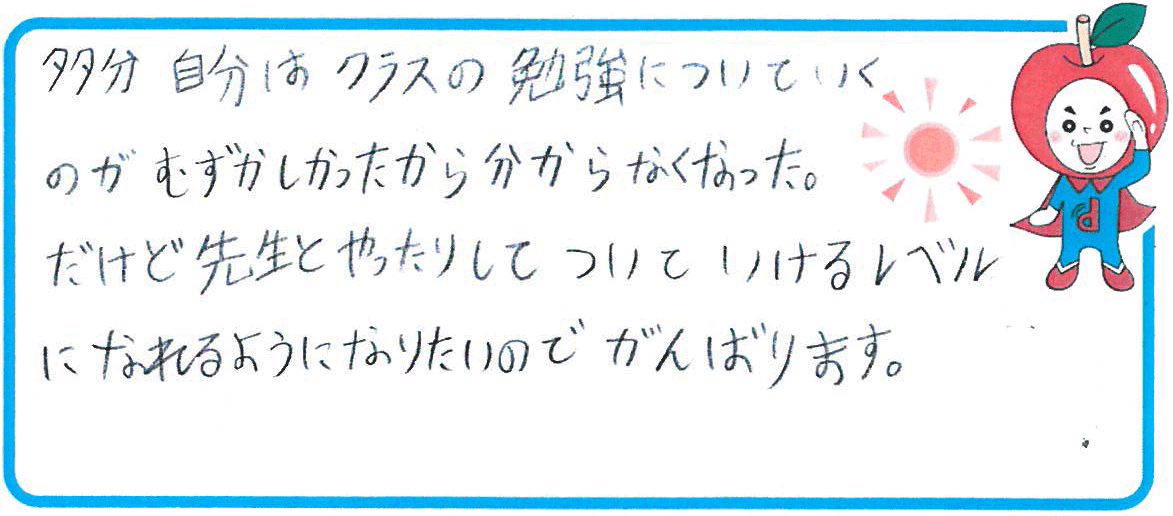 多分 自分は クラスの 勉強についていく
のが むずかしかったから 分からなくなった。
だけど 先生と やったりして ついて いけるレベル
に なれるようになりたいので がんばります。